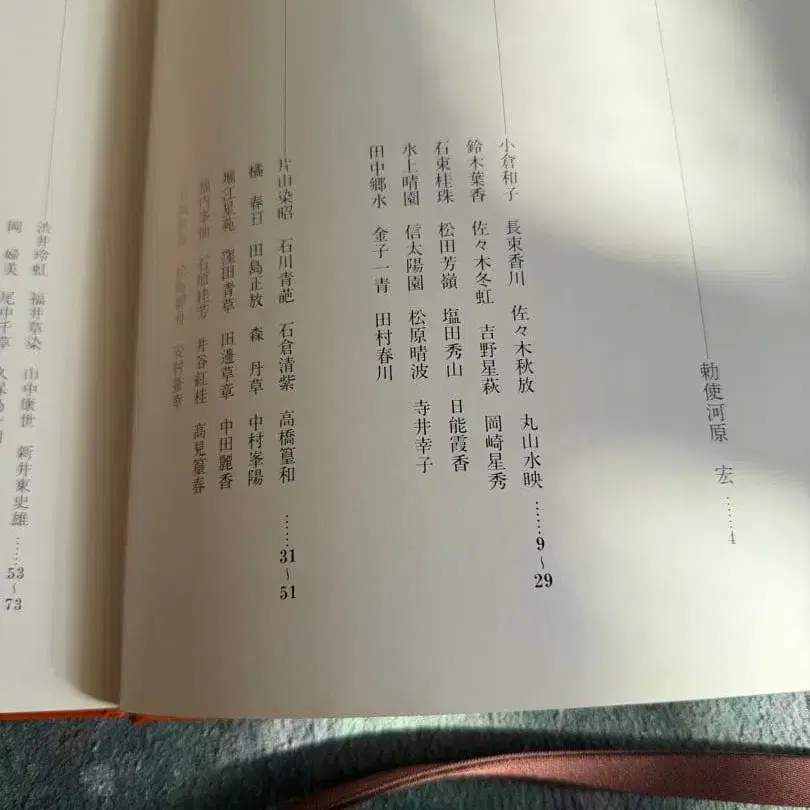 勅使河原 宏 ……4
小倉和子 長束香川 佐々木秋放 丸山水映 ……9~29
鈴木葉香 佐々木冬虹 吉野星萩 岡崎星秀
石束桂珠 松田芳嶺 塩田秀山 日能霞香
水上晴園 信太陽園 松原晴波 寺井幸子
田中郷水 金子一青 田村春川
片山染昭 石川青葩 石倉清紫 高橋篁和 ……31~51
橘 春日 田島正放 森 丹草 中村峯陽
堀江星苑 窪田青草 田邊草章 中田麗香
石原桂芳 井谷紅桂 高見篁春
福井草染 山中康世 新井東史雄 ……53~73
岡 婦美 尾中千草